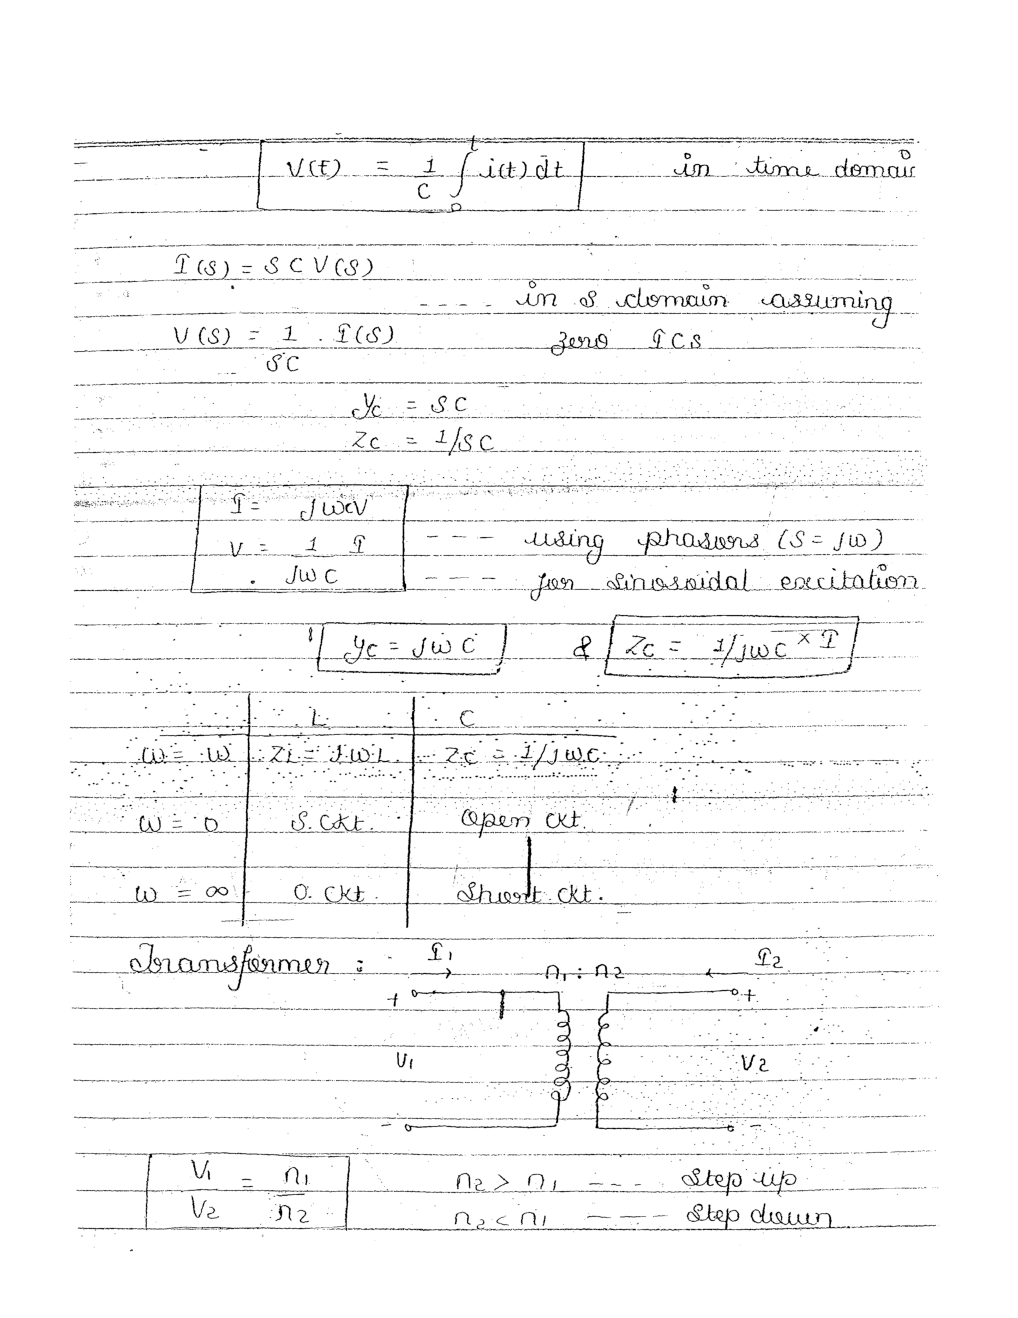 V(t) = 1/C ∫₀ᵗ i(t) dt in time domain
I(S) = S C V(S)
---- in S domain assuming
V(S) = 1/SC . I(S) zero ICS
Yc = SC
Zc = 1/SC
I = jωcV
V = 1/jωC I --- using phasors (S = jω)
--- for sinosoidal excitation
Yc = jωC & Zc = 1/jωC × I
L C
ω = ω ZL = jωL Zc = 1/jωc
ω = 0 S. Ckt. Open ckt.
ω = ∞ O. Ckt. Short ckt.
Transformer : I1 n1 : n2 I2
+ +
V1 V2
- -
V1/V2 = n1/n2 n2 > n1 --- Step up
n2 < n1 ---- Step down